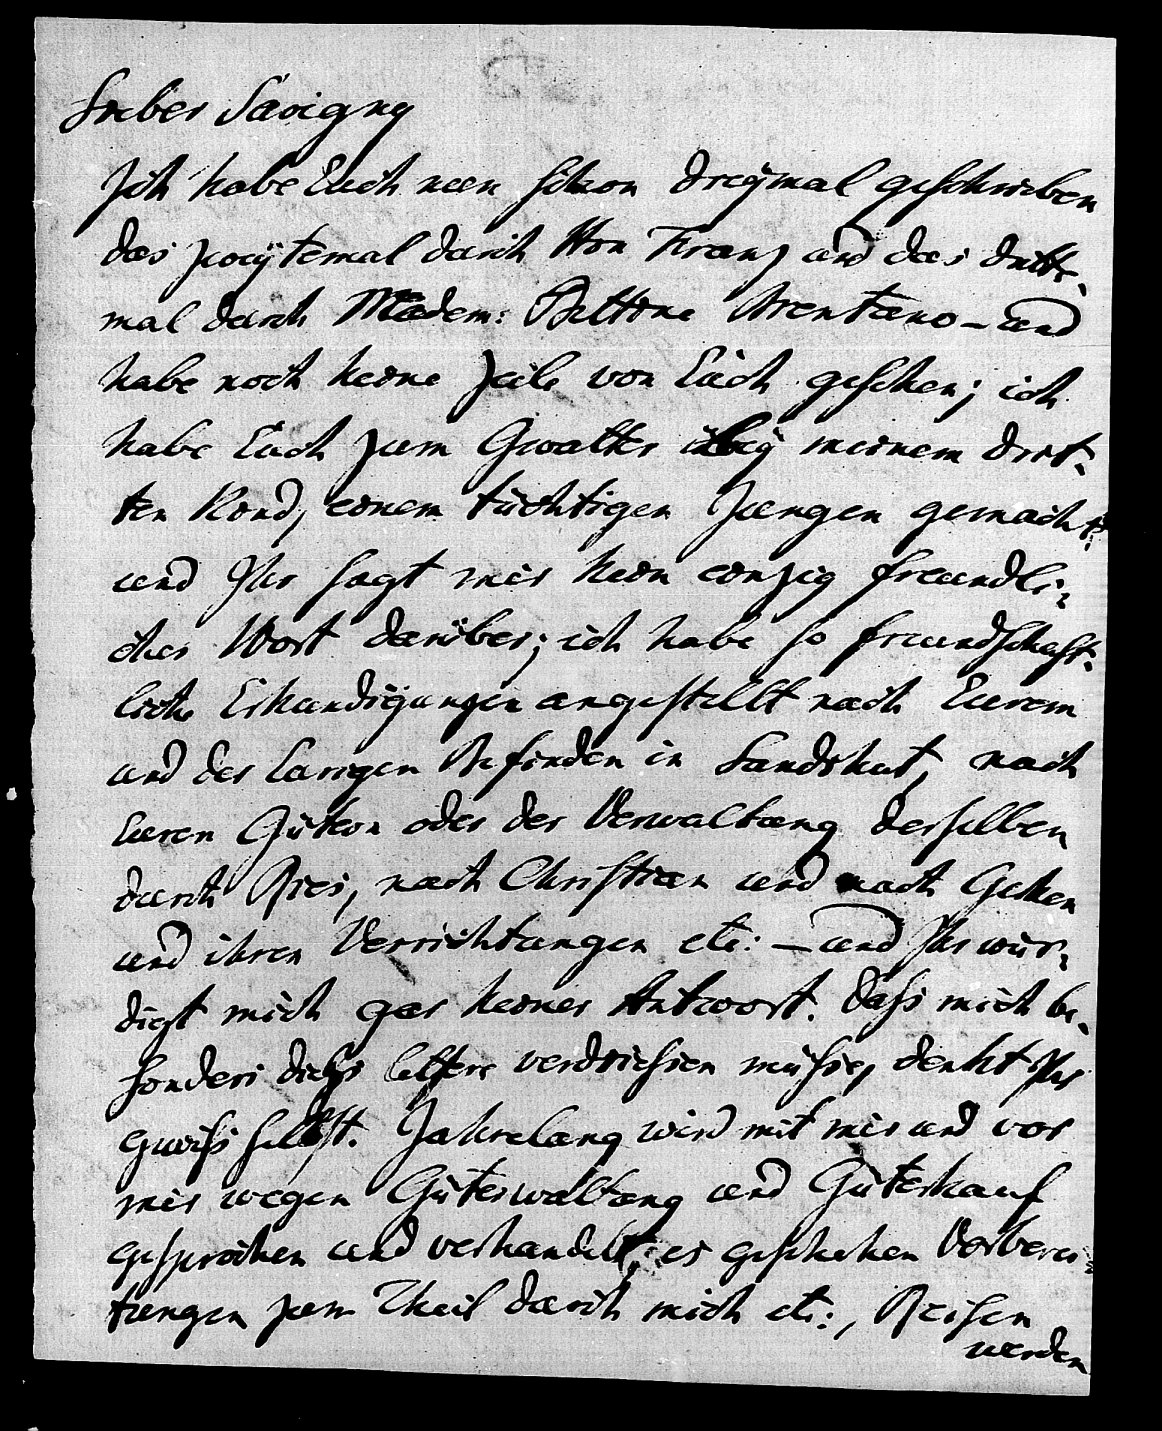 Lieber Savigny
Ich habe Euch nun schon dreymal geschrieben
das zweytemal durch Hrn Franz und das dritte-
mal durch Madem: Bettine Brentano – und
habe noch keine Zeile von Euch gesehen; ich
habe Euch zum Gevatter bey meinem drit-
ten Kind, einem tüchtigen Jungen gemacht
und Ihr sagt mir kein einzig freundli-
ches Wort darüber; ich habe so freundschaft-
liche Erkundigungen angestellt nach Eurem
und der Eurigen Befinden in Landshut, nach
Euren Gütern oder der Verwaltung derselben
durch Ries, nach Christian und nach Gehen
und ihren Verrichtungen etc: – und Ihr wür-
digt mich gar keiner Antwort. Dass mich be-
sonders diess letzere verdriessen müsse, denkt Ihr
gewiss selbst. Jahrelang wird mit mir und vor
mir wegen Güterwaltung und Güterkauf
gesprochen und verhandelt; es geschehen Vorberei-
tungen zum Theil durch mich etc:, Reisen
werden